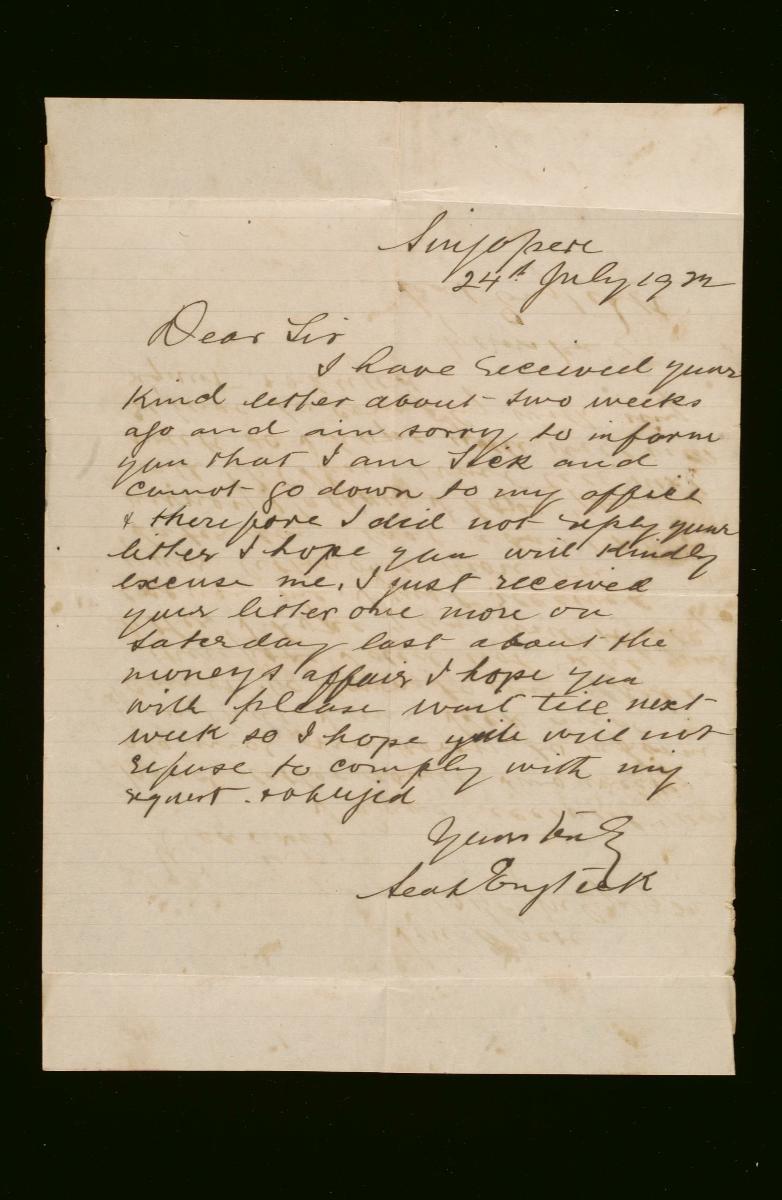 Singapore
24th July 19
Dear Sir
I have received your
kind letter about two weeks
ago and am sorry to inform
you that I am sick and
cannot go down to my office
& therefore I did not reply your
letter I hope you will kindly
excuse me. I just received
your letter one more on
Saturday last about the
moneys affair I hope you
will please wait till next
week so I hope you will not
refuse to comply with my
request. & obliged
Yours truly
Seah Eng